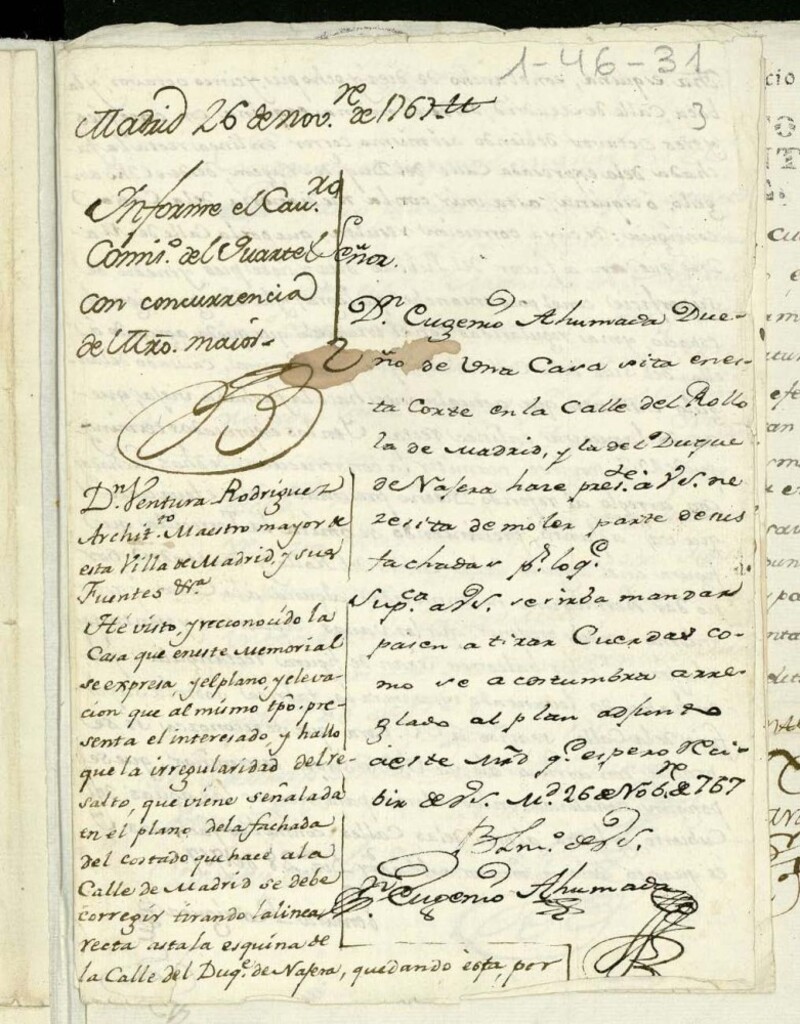 1-46-31
3
Madrid 26 de Nov.re de 1767.
Informe el Cau.ro
Comis.o del Quartel
con concurrencia
del Mro. maior.
Señor.
D.n Eugenio Ahumada Due-
ño de una Casa sita en es-
ta Corte en la Calle del Rollo
la de Madrid, y la del Duque
de Nafera hace pres.te a VS. ne
zesita demoler parte de sus
fachadas p.r lo q.e
Sup.ca a VS. se sirba mandar
pasen a tirar Cuerdas co-
mo se acostumbra arre-
glado al plan adjunto
à este Mrd q.e espero Reci-
bir de VS. M.d 26 de Nob.re de 767
B L m.o de VS.
D.n Eugenio Ahumada
D.n Ventura Rodriguez
Archit.to Maestro mayor de
esta Villa de Madrid, y sus
Fuentes &.a
Hé visto, y reconocido la
Casa que en este Memorial
se expresa y el plano, y eleva
cion que al mismo tpô. pre-
senta el interesado, y hallo
que la irregularidad del re-
salto, que viene señalada
en el plano de la fachada
del costado que hace a la
Calle de Madrid se debe
corregir tirando la linea
recta asta la esquina de
la Calle del Duq.e de Nafera, quedando ésta, por